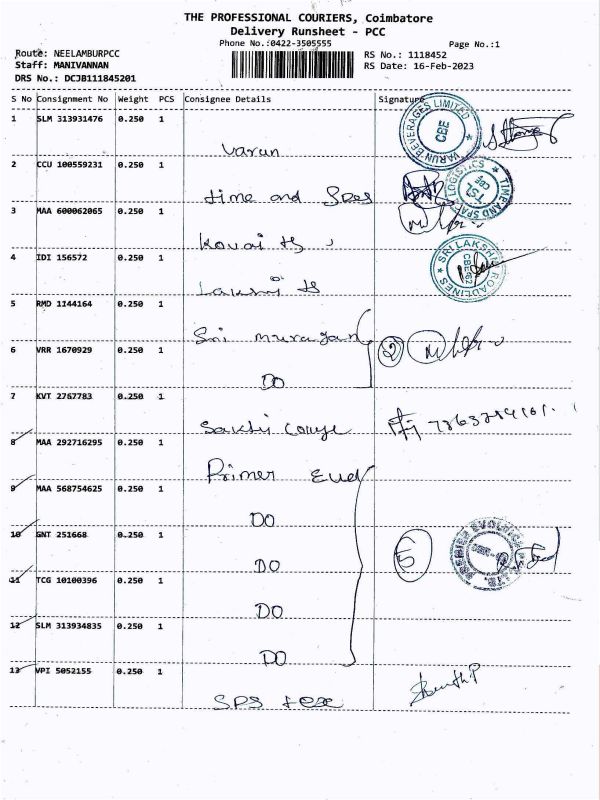 THE PROFESSIONAL COURIERS, Coimbatore
Delivery Runsheet - PCC
Phone No.:0422-3505555
Page No.:1
Route: NEELAMBURPCC
RS No.: 1118452
Staff: MANIVANNAN
RS Date: 16-Feb-2023
DRS No.: DCJB111845201
S No Consignment No Weight PCS Consignee Details Signature
1 SLM 313931476 0.250 1
Varun
VARUN BEVERAGES LIMITED
CBE
2 CCU 100559231 0.250 1
time and
TIME AND LOGISTICS
TSL
3 MAA 600062065 0.250 1
Kovai
4 IDI 156572 0.250 1
Laksmi
SRI LAKSHMI ROADLINES
CBE-62
5 RMD 1144164 0.250 1
Sri murugan
6 VRR 1670929 0.250 1
DO
2
7 KVT 2767783 0.250 1
Sakthi
8 MAA 292716295 0.250 1
Primer
9 MAA 568754625 0.250 1
DO
10 GNT 251668 0.250 1
DO
5
11 TCG 10100396 0.250 1
DO
12 SLM 313934835 0.250 1
DO
13 VPI 5052155 0.250 1
SPS